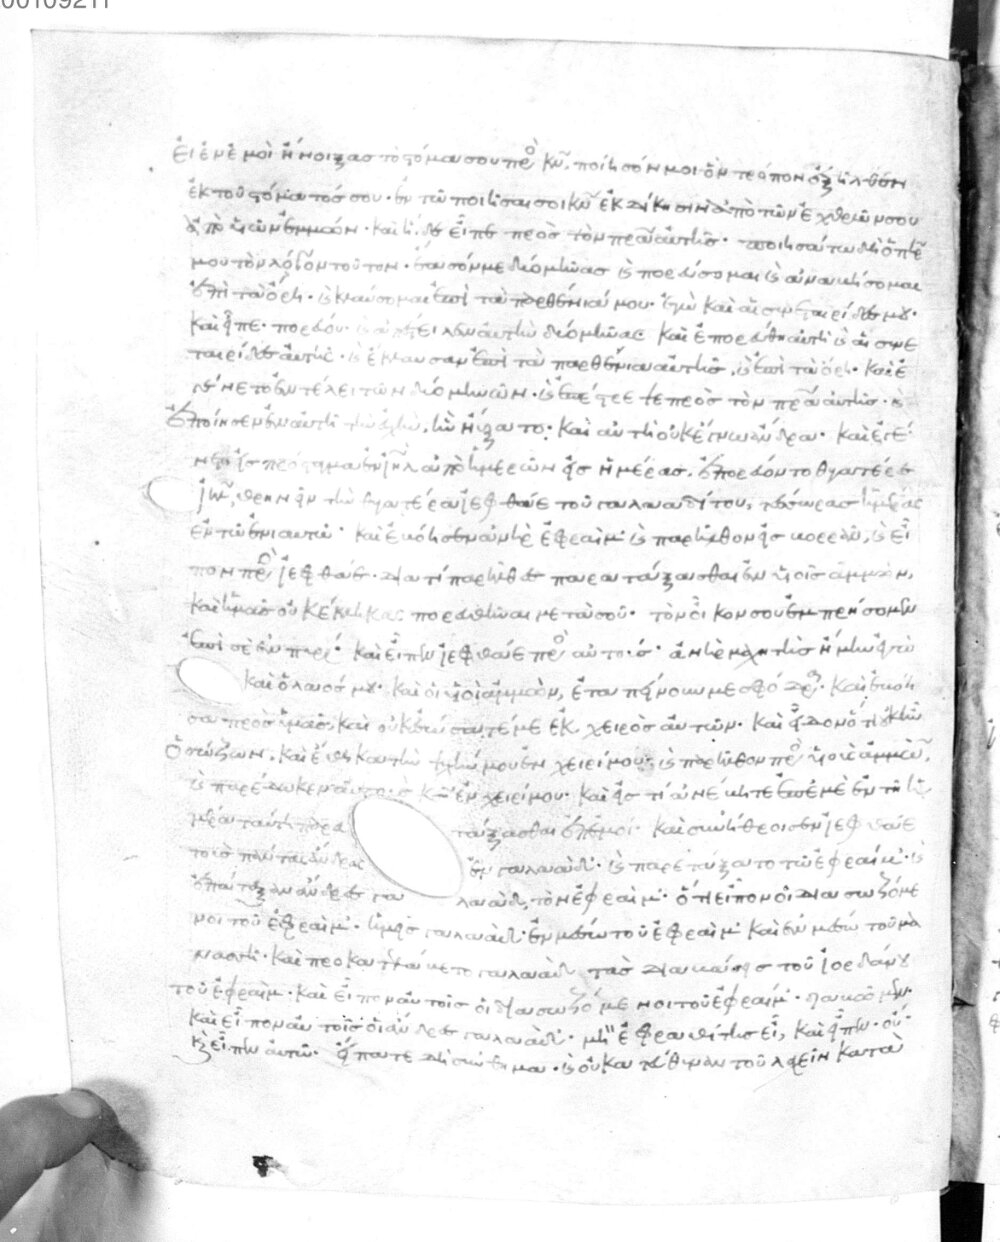 00109211
εἰ ἐν ἐμοὶ ἤνοιξας τὸ στόμα σου πρὸς κν, ποίησόν μοι ὃν τρόπον ἐξῆλθεν
ἐκ τοῦ στόματός σου· ἐν τῶ ποιῆσαι σοι κν ἐκδίκησιν ἀπὸ τῶν ἐχθρῶν σου
ἀπὸ υἱῶν ἀμμών· καὶ ἥδε εἶπε πρὸς τὸν πρα αὐτῆς· ποιησάτω δὴ ὁ πηρ
μου τὸν λόγον τοῦτον· ἔασόν με δύο μῆνας καὶ πορεύσομαι καὶ
ἐπὶ τὰ ὄρη· καὶ κλαύσομαι ἐπὶ τὰ παρθένιά μου· ἐγὼ καὶ αἱ συνεταιρίδες μου·
καὶ εἶπε· πορεύου· καὶ ἀπέστειλεν αὐτὴν δύο μῆνας καὶ ἐπορεύθη αὐτὴ καὶ αἱ συνε
ταιρίδες αὐτῆς· καὶ ἔκλαυσαν ἐπὶ τὰ παρθένια αὐτῆς, καὶ ἐπὶ τὰ ὄρη· καὶ ἐ
γένετο ἐν τέλει τῶν δύο μηνῶν· καὶ ἐπέστρεψε πρὸς τὸν πρα αὐτῆς· καὶ
ἐποίησεν ἐν αὐτῆ τὴν εὐχὴν, ἣν ηὔξατο· καὶ αὐτὴ οὐκ ἔγνω ἄνδρα· καὶ ἐγέ
νετο εἰς πρόσταγμα ἐν ιηλ ἀφ' ἡμερῶν εἰς ἡμέρας. ἐπορεύοντο θυγατέρες
ιηλ, θρηνεῖν τὴν θυγατέρα ἰεφθάε τοῦ γαλααδίτου, τέσσαρας ἡμέρας
ἐν τῶ ἐνιαυτῶ· καὶ ἐβόησεν ἀνὴρ ἐφραίμ· καὶ παρῆλθον εἰς βορρᾶν, καὶ εἶ
πον πρὸς ἰεφθάε· διατί παρῆλθες παρατάξασθαι ἐν υἱοῖς ἀμμών,
καὶ ἡμᾶς οὐ κέκληκας πορευθῆναι μετὰ σοῦ· τὸν οἶκόν σου ἐμπρήσομεν
ἐπὶ σὲ ἐν πυρί· καὶ εἶπεν ἰεφθάε πρὸς αὐτούς· ἀνὴρ μαχητὴς ἤμην ἐγὼ
καὶ ὁ λαός μου· καὶ οἱ υἱοὶ ἀμμών, ἐταπείνουν με σφόδρα· καὶ ἐβόη
σα πρὸς ὑμᾶς, καὶ οὐκ ἐσώσατέ με ἐκ χειρὸς αὐτῶν· καὶ εἶδον ὅτι οὐκ ἦν
ὁ σώζων, καὶ ἔθηκα τὴν ψυχήν μου ἐν χειρί μου· καὶ παρῆλθον πρὸς υἱοὺς ἀμμών,
καὶ παρέδωκεν αὐτοὺς κς ἐν χειρί μου· καὶ εἰς τί ἀνέβητε ἐπ' ἐμὲ ἐν τῆ ἡ
μέρα ταύτη παρα τάξασθαι ἐν ἐμοί· καὶ συνήθροισεν ἰεφθάε
τοὺς πάντας ἄνδρας ἐν γαλαὰδ· καὶ παρετάξατο τῶ ἐφραίμ· καὶ
ἐπάταξαν ἄνδρες γα λαὰδ, τὸν ἐφραίμ· ὅτι εἶπον οἱ διασωζόμε
νοι τοῦ ἐφραίμ· ὑμεῖς γαλαὰδ· ἐν μέσω τοῦ ἐφραίμ καὶ ἐν μέσω τοῦ μα
νασσῆ· καὶ προκατελάβετο γαλαὰδ τὰς διαβάσεις τοῦ ἰορδάνου
τοῦ ἐφραίμ· καὶ εἶπον αὐτοῖς οἱ διασωζόμενοι τοῦ ἐφραίμ·
καὶ εἶπον αὐτοῖς οἱ ἄνδρες γαλαὰδ· μὴ ἐφραθίτης εἶ, καὶ εἶπεν· οὔ·
καὶ εἶπεν αὐτῶ· εἴπατε δὴ σύνθημα· καὶ οὐ κατεύθυναν τοῦ λαλεῖν κατὰ